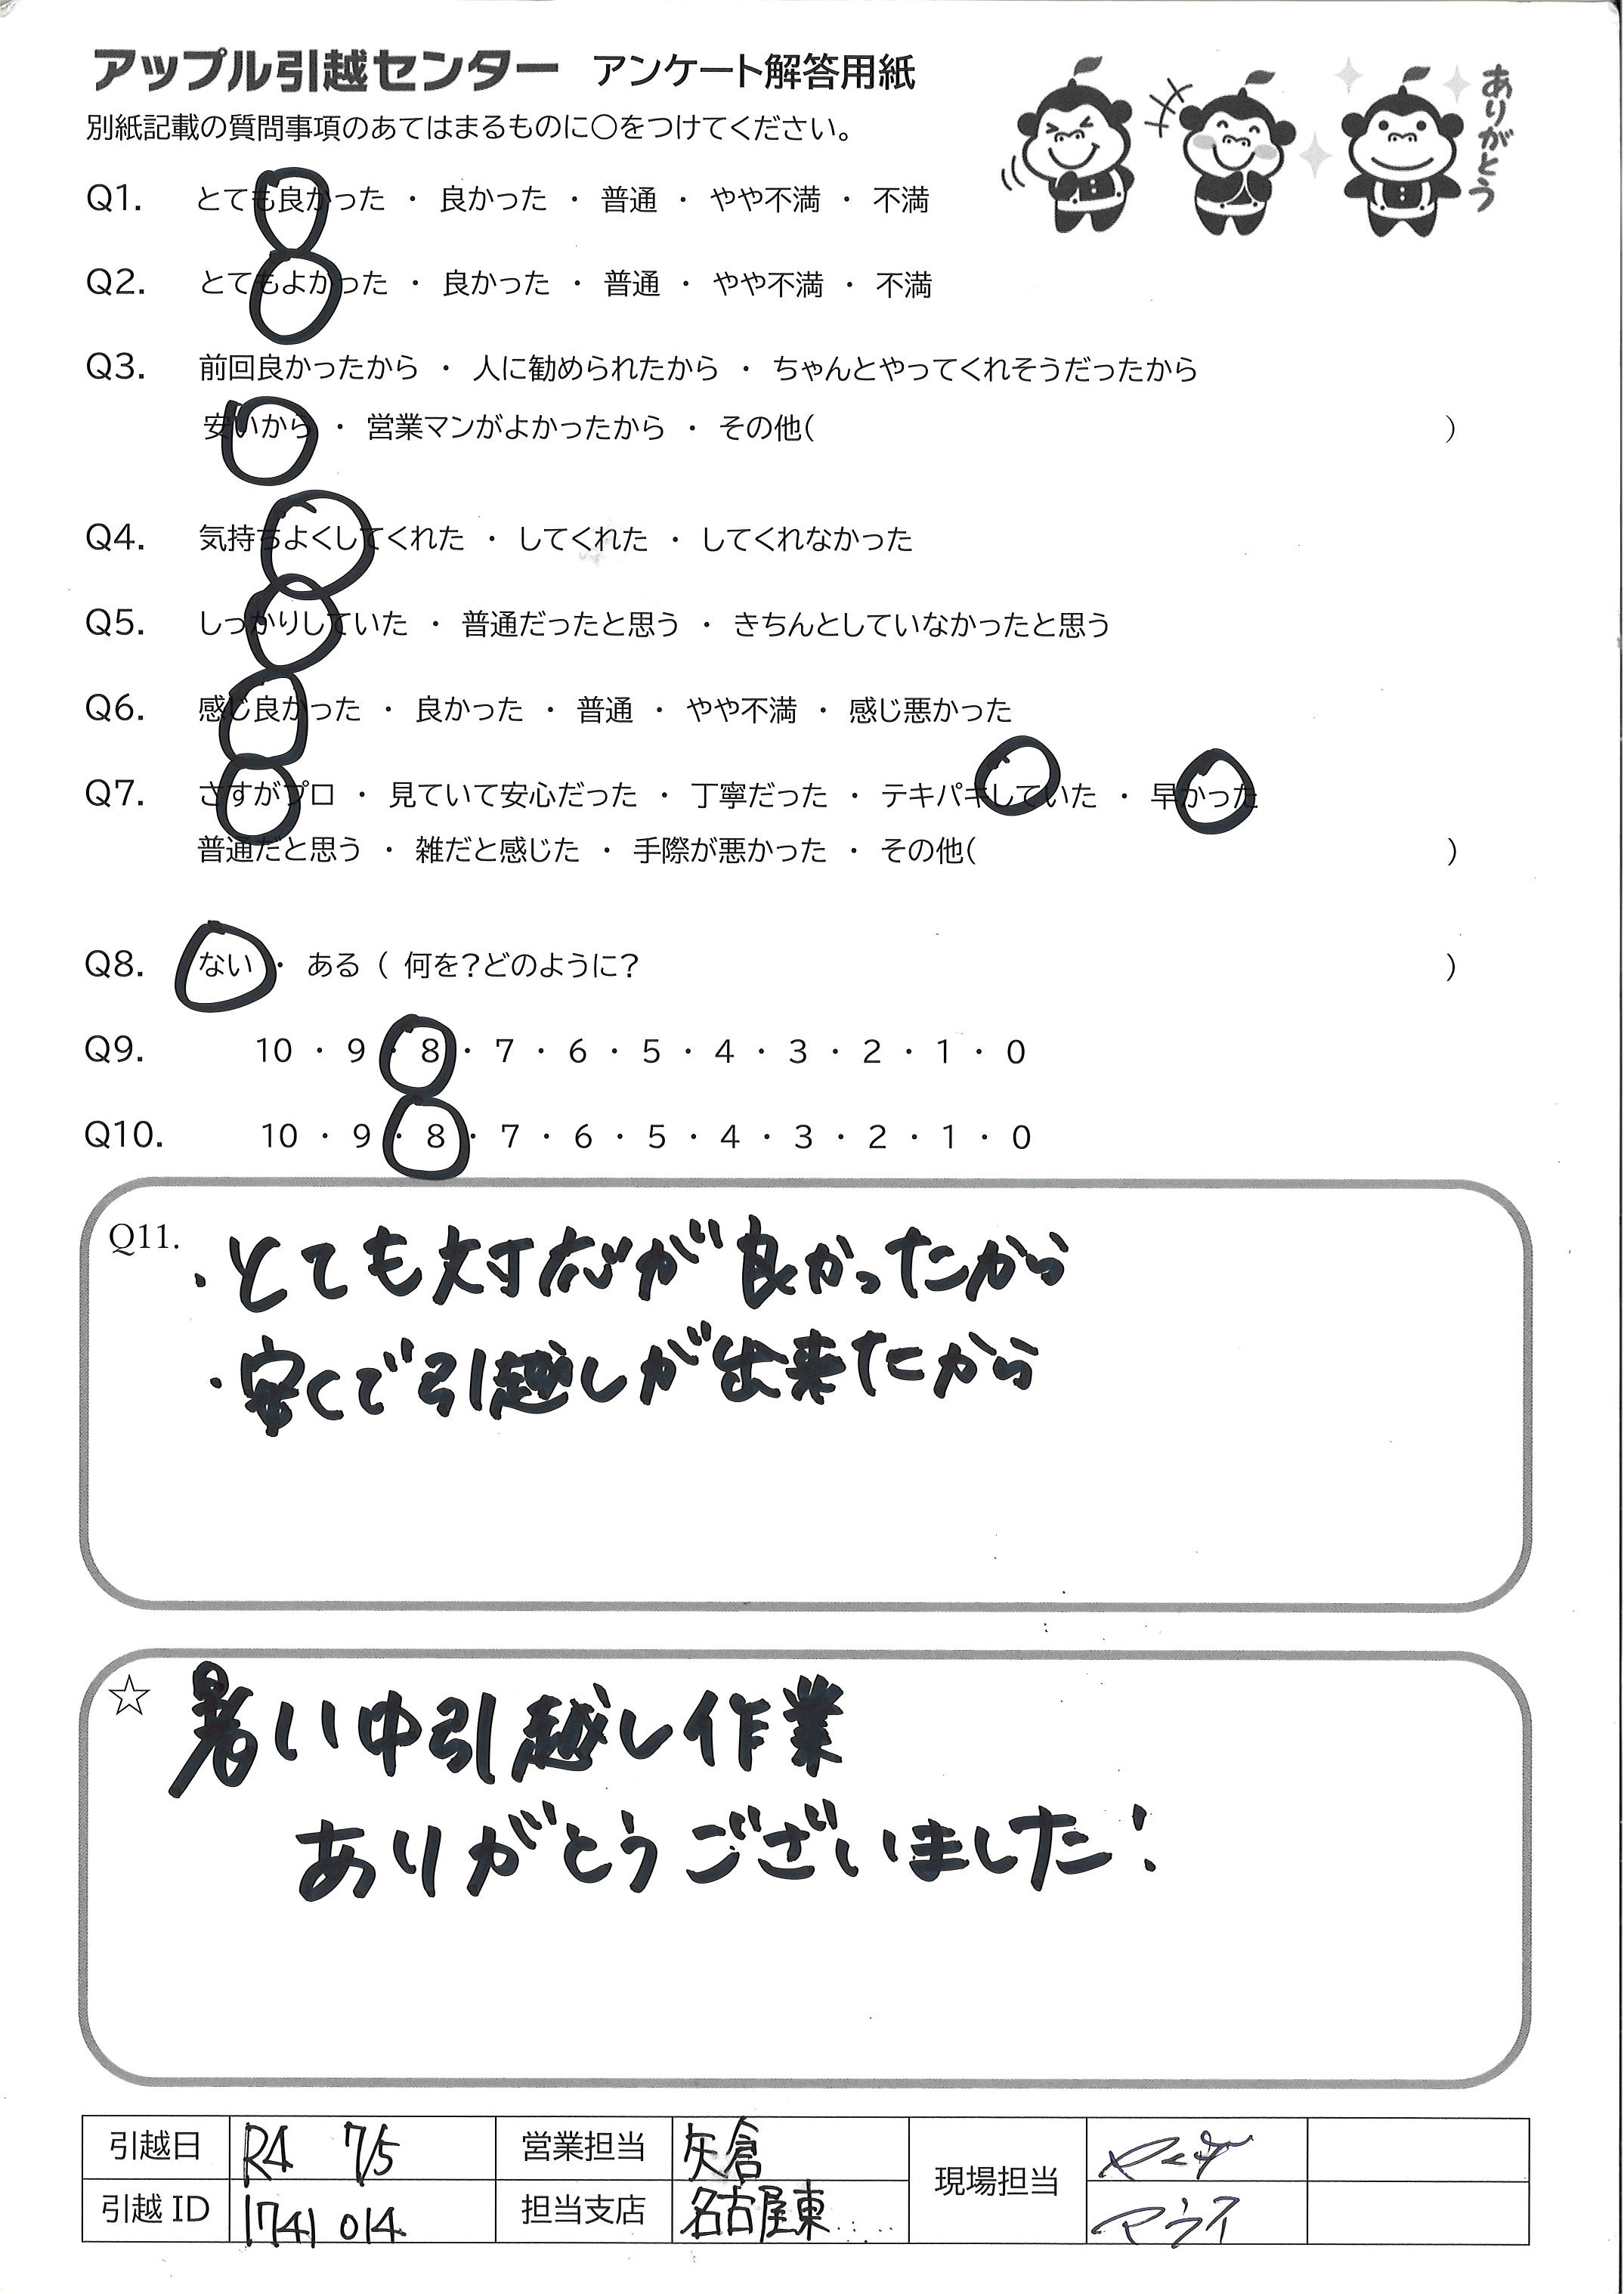 アップル引越センター アンケート解答用紙
ありがとう
別紙記載の質問事項のあてはまるものに○をつけてください。
Q1. とても良かった ・ 良かった ・ 普通 ・ やや不満 ・ 不満
Q2. とてもよかった ・ 良かった ・ 普通 ・ やや不満 ・ 不満
Q3. 前回良かったから ・ 人に勧められたから ・ ちゃんとやってくれそうだったから
安いから ・ 営業マンがよかったから ・ その他( )
Q4. 気持ちよくしてくれた ・ してくれた ・ してくれなかった
Q5. しっかりしていた ・ 普通だったと思う ・ きちんとしていなかったと思う
Q6. 感じ良かった ・ 良かった ・ 普通 ・ やや不満 ・ 感じ悪かった
Q7. さすがプロ ・ 見ていて安心だった ・ 丁寧だった ・ テキパキしていた ・ 早かった
普通だと思う ・ 雑だと感じた ・ 手際が悪かった ・ その他( )
Q8. ない ・ ある ( 何を?どのように? )
Q9. 10 ・ 9 ・ 8 ・ 7 ・ 6 ・ 5 ・ 4 ・ 3 ・ 2 ・ 1 ・ 0
Q10. 10 ・ 9 ・ 8 ・ 7 ・ 6 ・ 5 ・ 4 ・ 3 ・ 2 ・ 1 ・ 0
Q11. ・とても対応が良かったから
・安くで引越しが出来たから
☆ 暑い中引越し作業
ありがとうございました!
引越日 R4 7/5 営業担当 矢倉 現場担当
引越ID 1741014 担当支店 名古屋東